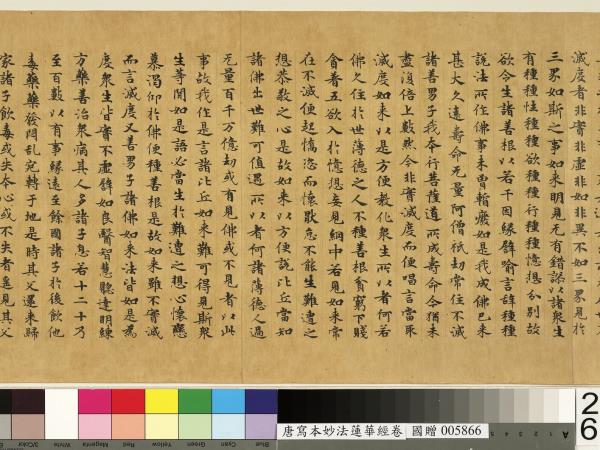 滅度者非實非虛非如非異不如三界見於
三界如斯之事如來明見无有錯謬以諸衆生
有種種性種種欲種種行種種憶想分別故
欲令生諸善根以若干因緣譬喻言辭種種
說法所作佛事未曾暫癈如是我成佛已來
甚大久遠壽命无量阿僧祇劫常住不滅
諸善男子我本行菩薩道所成壽命今猶未
盡復倍上數然今非實滅度而便唱言當取
滅度如來以是方便教化衆生所以者何若
佛久住於世薄德之人不種善根貧窮下賤
貪著五欲入於憶想妄見網中若見如來常
在不滅便起憍恣而懷猒怠不能生難遭之
想恭敬之心是故如來以方便說比丘當知
諸佛出世難可值遇所以者何諸薄德人過
无量百千万億劫或有見佛或不見者以此
事故我作是言諸比丘如來難可得見斯衆
生等聞如是語必當生於難遭之想心懷戀
慕渴仰於佛便種善根是故如來雖不實滅
而言滅度又善男子諸佛如來法皆如是為
度衆生皆實不虛譬如良醫智慧聰達明練
方藥善治衆病其人多諸子息若十二十乃
至百數以有事緣遠至餘國諸子於後飲他
毒藥藥發悶亂宛轉于地是時其父還來歸
家諸子飲毒或失本心或不失者遙見其父
3/Color White Magenta Red Yellow Green Cyan Blue
唐寫本妙法蓮華經卷 國贈 005866
A 1 2 3 4 5
26